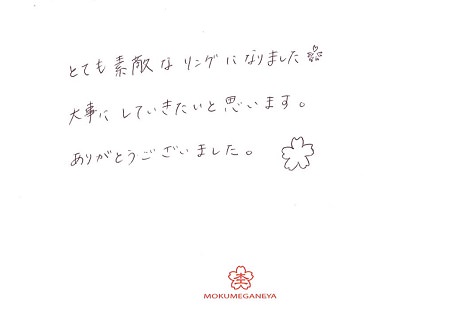 とても素敵なリングになりました
大事にしていきたいと思います。
ありがとうございました。
MOKUMEGANEYA